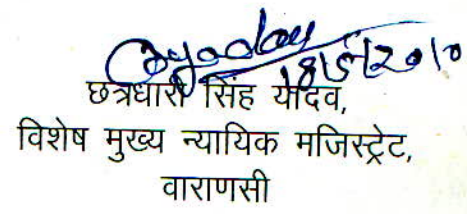 18/5/2010
छत्रधारी सिंह यादव,
विशेष मुख्य न्यायिक मजिस्ट्रेट,
वाराणसी